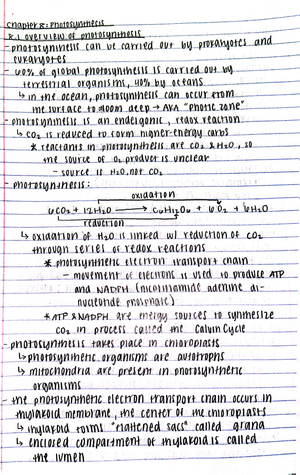 Chapter 8: Photosynthesis
8.1 overview of photosynthesis
- photosynthesis can be carried out by prokaryotes and
eukaryotes
- 60% of global photosynthesis is carried out by
terrestrial organisms, 40% by oceans
↳ in the ocean, photosynthesis can occur from
the surface to 100m deep → AKA "photic zone"
- photosynthesis is an endergonic, redox reaction
↳ CO₂ is reduced to form higher-energy carbs
* reactants in photosynthesis are CO₂ & H₂O, so
the source of O₂ product is unclear
- source is H₂O, not CO₂
- photosynthesis:
oxidation
6CO₂ + 12H₂O → C₆H₁₂O₆ + 6O₂ + 6H₂O
reduction
↳ oxidation of H₂O is linked w/ reduction of CO₂
through series of redox reactions
* photosynthetic electron transport chain
- movement of electrons is used to produce ATP
and NADPH (nicotinamide adenine di-
nucleotide phosphate)
* ATP & NADPH are energy sources to synthesize
CO₂ in process called the Calvin Cycle
- photosynthesis takes place in chloroplasts
↳ photosynthetic organisms are autotrophs
↳ mitochondria are present in photosynthetic
organisms
- the photosynthetic electron transport chain occurs in
thylakoid membrane, the center of the chloroplasts
↳ thylakoid forms "flattened sacs" called grana
↳ enclosed compartment of thylakoid is called
the lumen